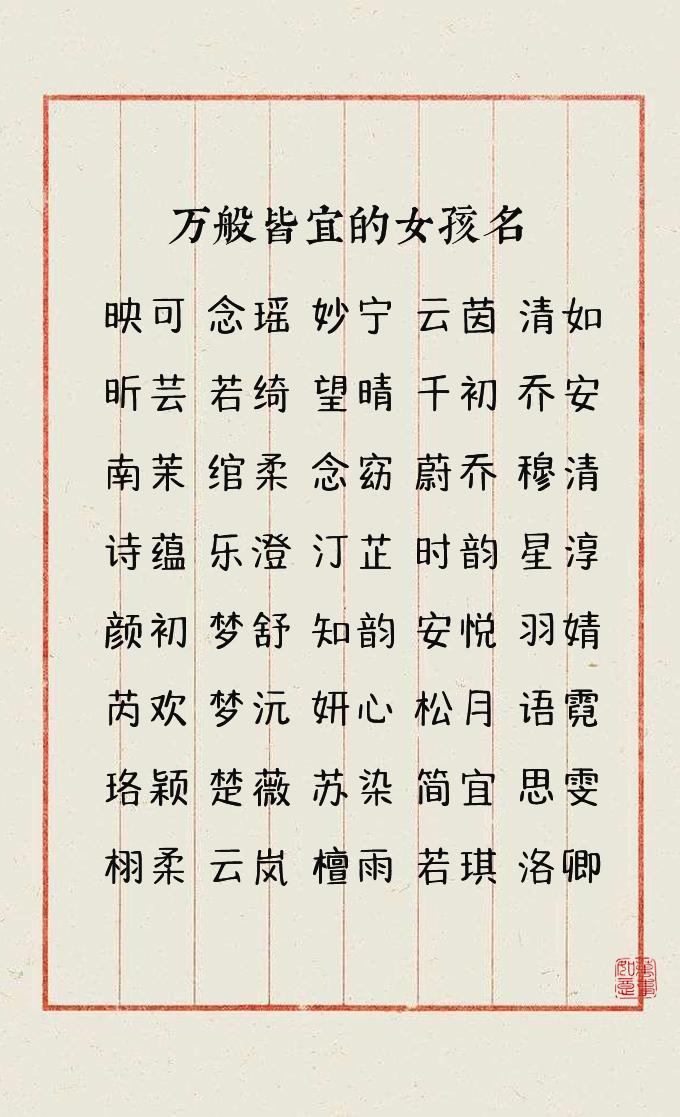 万般皆宜的女孩名
映可 念瑶 妙宁 云茵 清如
昕芸 若绮 望晴 千初 乔安
南茉 绾柔 念窈 蔚乔 穆清
诗蕴 乐澄 汀芷 时韵 星淳
颜初 梦舒 知韵 安悦 羽婧
芮欢 梦沅 妍心 松月 语霓
珞颖 楚薇 苏染 简宜 思雯
栩柔 云岚 檀雨 若琪 洛卿
萬事
如意